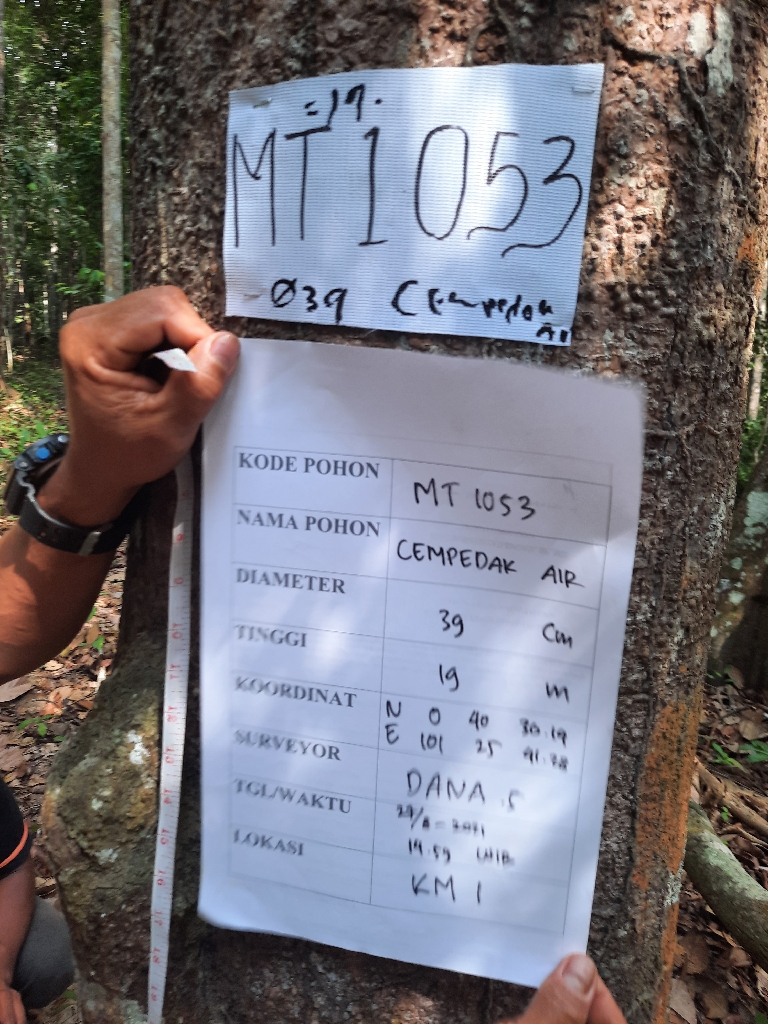 =19.
MT1053
Ø39 Cempedak
Air
KODE POHON MT 1053
NAMA POHON CEMPEDAK AIR
DIAMETER 39 Cm
TINGGI 19 m
KOORDINAT N 0 40
E 101 25
SURVEYOR DANA.S
TGL/WAKTU
14.59 WIB
LOKASI KM 1